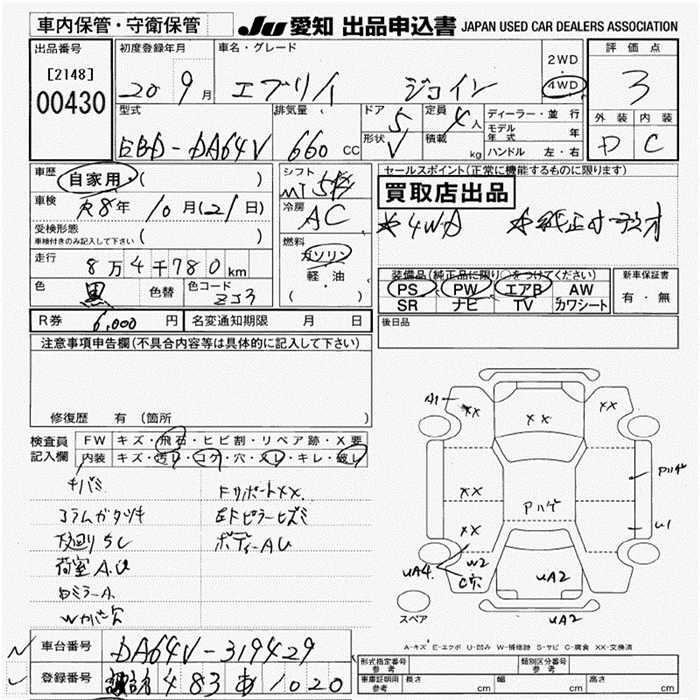 車内保管・守衛保管
JU 愛知 出品申込書 JAPAN USED CAR DEALERS ASSOCIATION
出品番号
[2148]
00430
初度登録年月
20 9月
車名・グレード
エブリイ ジョイン
2WD
4WD
評価点
3
外装 内装
D C
型式
EBD-DA64V
排気量
660 CC
ドア
5
形状
V
定員
4人
積載
kg
ディーラー・並行
モデル年式 年
ハンドル 左・右
車歴
自家用 ( )
車検
R8年 10月(21日)
受検形態
車検付きのみ記入して下さい ( )
走行
8万4千780km
色
黒
色替
色コード
ZJ3
シフト
MT 5速
冷房
AC
燃料
ガソリン
軽・油
( )
セールスポイント(正常に機能するものに限ります)
買取店出品
*4WD *純正オーディオ
装備品(純正品に限り○をつけてください)
PS PW エアB AW
SR ナビ TV カワシート
新車保証書
有・無
R券 6,000円
名変通知期限 月 日
後日品
注意事項申告欄(不具合内容等は具体的に記入して下さい)
修復歴 有 (箇所 )
検査員
記入欄
FW キズ・飛石・ヒビ割・リペア跡・X要
内装 キズ・汚レ・コゲ・穴・スレ・キレ・破レ
チバミ
コラムガタツキ
下廻りSC
荷室A.U
Bミラー A.
Wカバー欠
FリポートXX.
ボディーAU
A1
XX
XX
XX
Pハゲ
Pハゲ
U1
XX
XX
UA4.
W2
C穴
UA2
UA2
スペア
A-キズ E-エクボ U-凹み W-補修跡 S-サビ C-腐食 XX-交換済
車台番号 DA64V-319429
登録番号 483 あ 1020
形式指定番号
参考
類別区分番号
参考
車庫証明用
参考
長さ cm
幅 cm
高さ cm